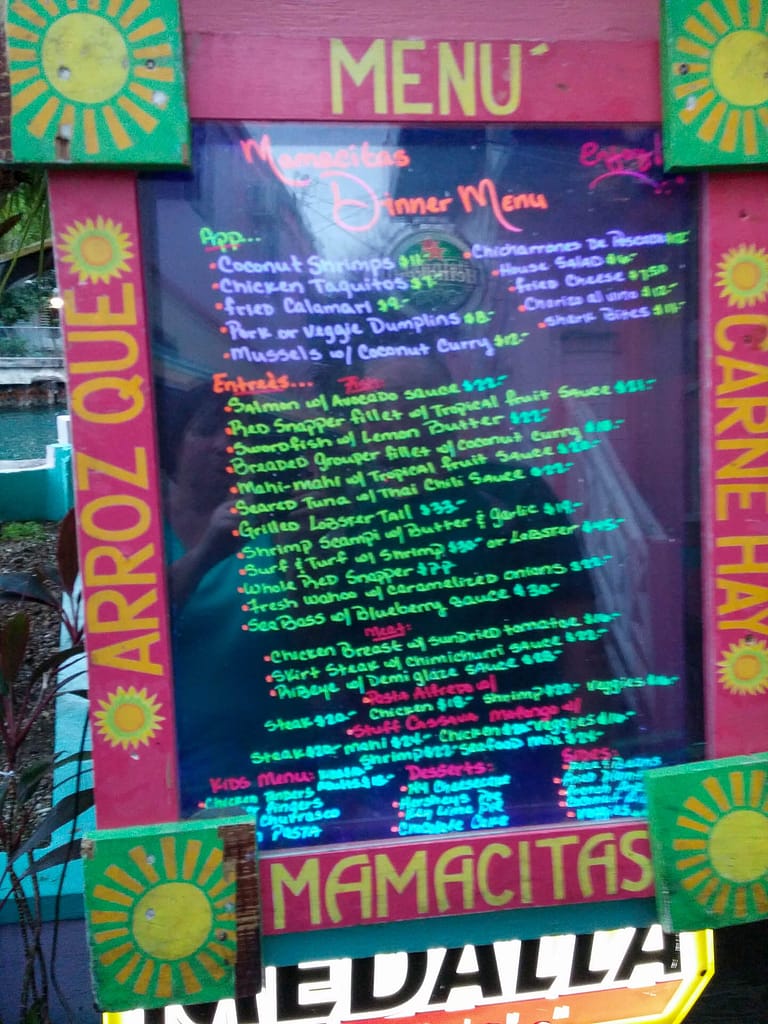 MENU´
Mamacitas
Enjoy!
Dinner Menu
App...
•Coconut Shrimps $11-
•Chicken Taquitos $9-
•Fried Calamari $9-
•Pork or Veggie Dumplins $8-
•Mussels w/ Coconut Curry $12-
•Chicharrones De Pescado
•House Salad $6-
•Fried Cheese $7.50
•Chorizo al vino $12-
•Shark Bites $11-
Entreès... Fish:
•Salmon w/ Avocado sauce $22-
•Red Snapper fillet w/ Tropical fruit Sauce $21-
•Swordfish w/ Lemon Butter $22-
•Breaded Grouper fillet w/ Coconut Curry $18-
•Mahi-mahi w/ Tropical fruit Sauce $20-
•Seared Tuna w/ Thai Chili Sauce $22-
•Grilled Lobster Tail $33-
•Shrimp Scampi w/ Butter & garlic $19-
•Surf & Turf w/ Shrimp $30- or Lobster $45-
•Whole Red Snapper $PP
•Fresh Wahoo w/ Caramelized onions $22-
•Sea Bass w/ Blueberry Sauce $30-
Meat:
•Chicken Breast w/ sundried tomatoe
•Skirt Steak w/ Chimichurri sauce $22-
•Ribeye w/ Demi glaze sauce
Pasta Alfredo w/
Steak $20- Chicken $18- Shrimp $22- Veggies $16-
•Stuff Cassava Mofongo w/
Steak $20- Mahi $24- Chicken Veggies $16-
Shrimp $22- Seafood mix $25-
Kids Menu:
Chicken
Fingers
Churrasco
Pasta
Desserts:
•NY Cheesecake
•Key Lime Pie
•Chocolate Cake
Sides:
ARROZ QUE
CARNE HAY
MAMACITAS
MEDALLA